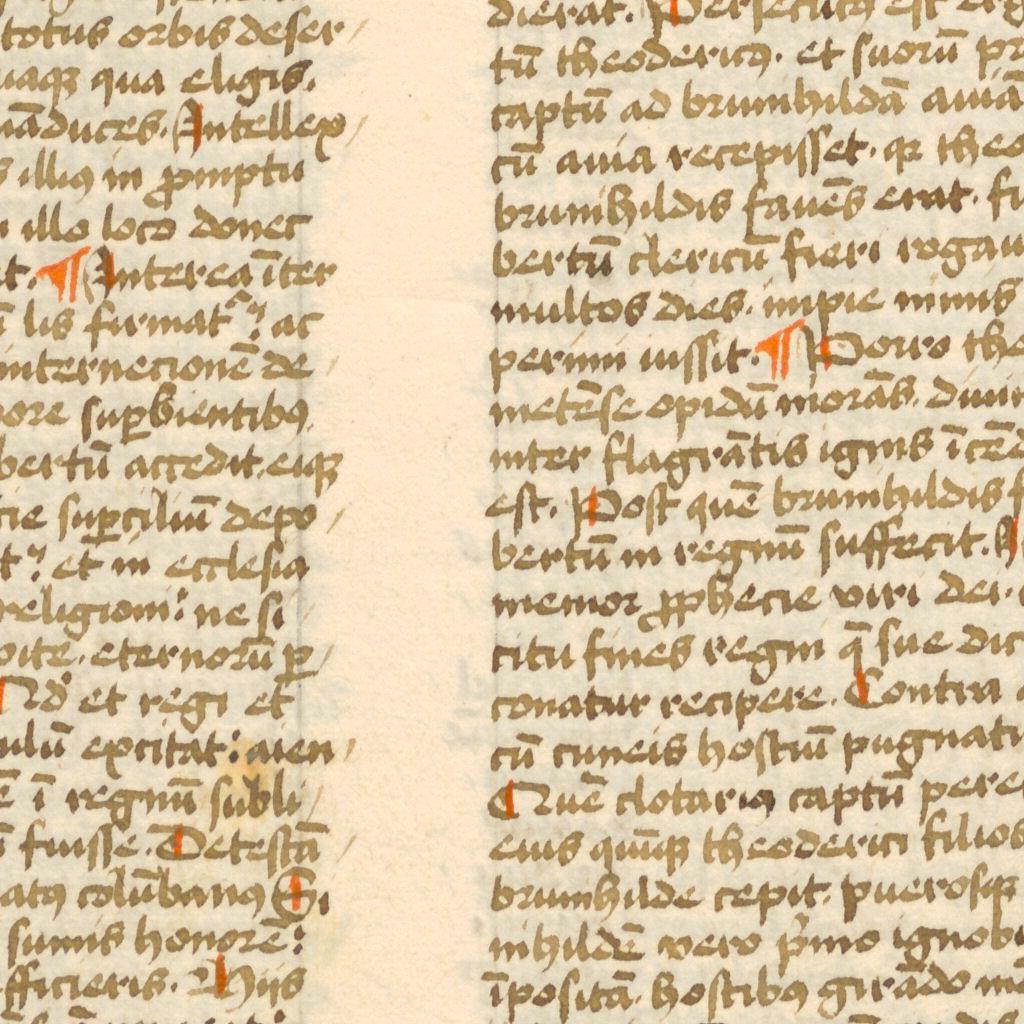 totus orbis deser/
uaqꝫ qua eligis.
nāduces. Intellex/
s illiꝰ in ꝓmptu
illo loco donec
t. ¶ Interea īter
lis firmatꝰ: ac
internecionē de/
ore suꝑbientibꝰ.
bertū accedit. eiqꝫ
cie suꝑciliū depo/
t: et in ecclesia
religioni: ne si/
oite. eternorū ꝑ/
Ad et regi et
ulū excitat: aien/
ē ī regnū subli/
fuisse. Detestā/
atꝰ colūbanꝰ Si
sumis honorē:
fficieris. Hijs
dierat. Persecutꝰ est erg
tū theodericꝰ. et suorū pr
captū ad brunihildā auiā
cū auia recepisset. qꝛ theo
brunihildis fauēs erat. fi
bertū clericū fieri rogau
multos dies. impie nimis
perimi iussit. ¶ Porro the
metēse opidū morās. diuin
inter flagrātis ignis īcēd
est. Post quē brunihildis s
bertū in regnū suffecit.
memor ꝓphecie viri dei.
citu fines regni q̄ sue dic
conatur recipere. Contra
cū cuneis hostiū pugnatu
Quē clotariꝰ captū pere
eius quīqꝫ theoderici filios
brunihilde cepit. puerosqꝫ
nihildē vero pͥmo ignobi
īpositā. hostibꝰ girādo